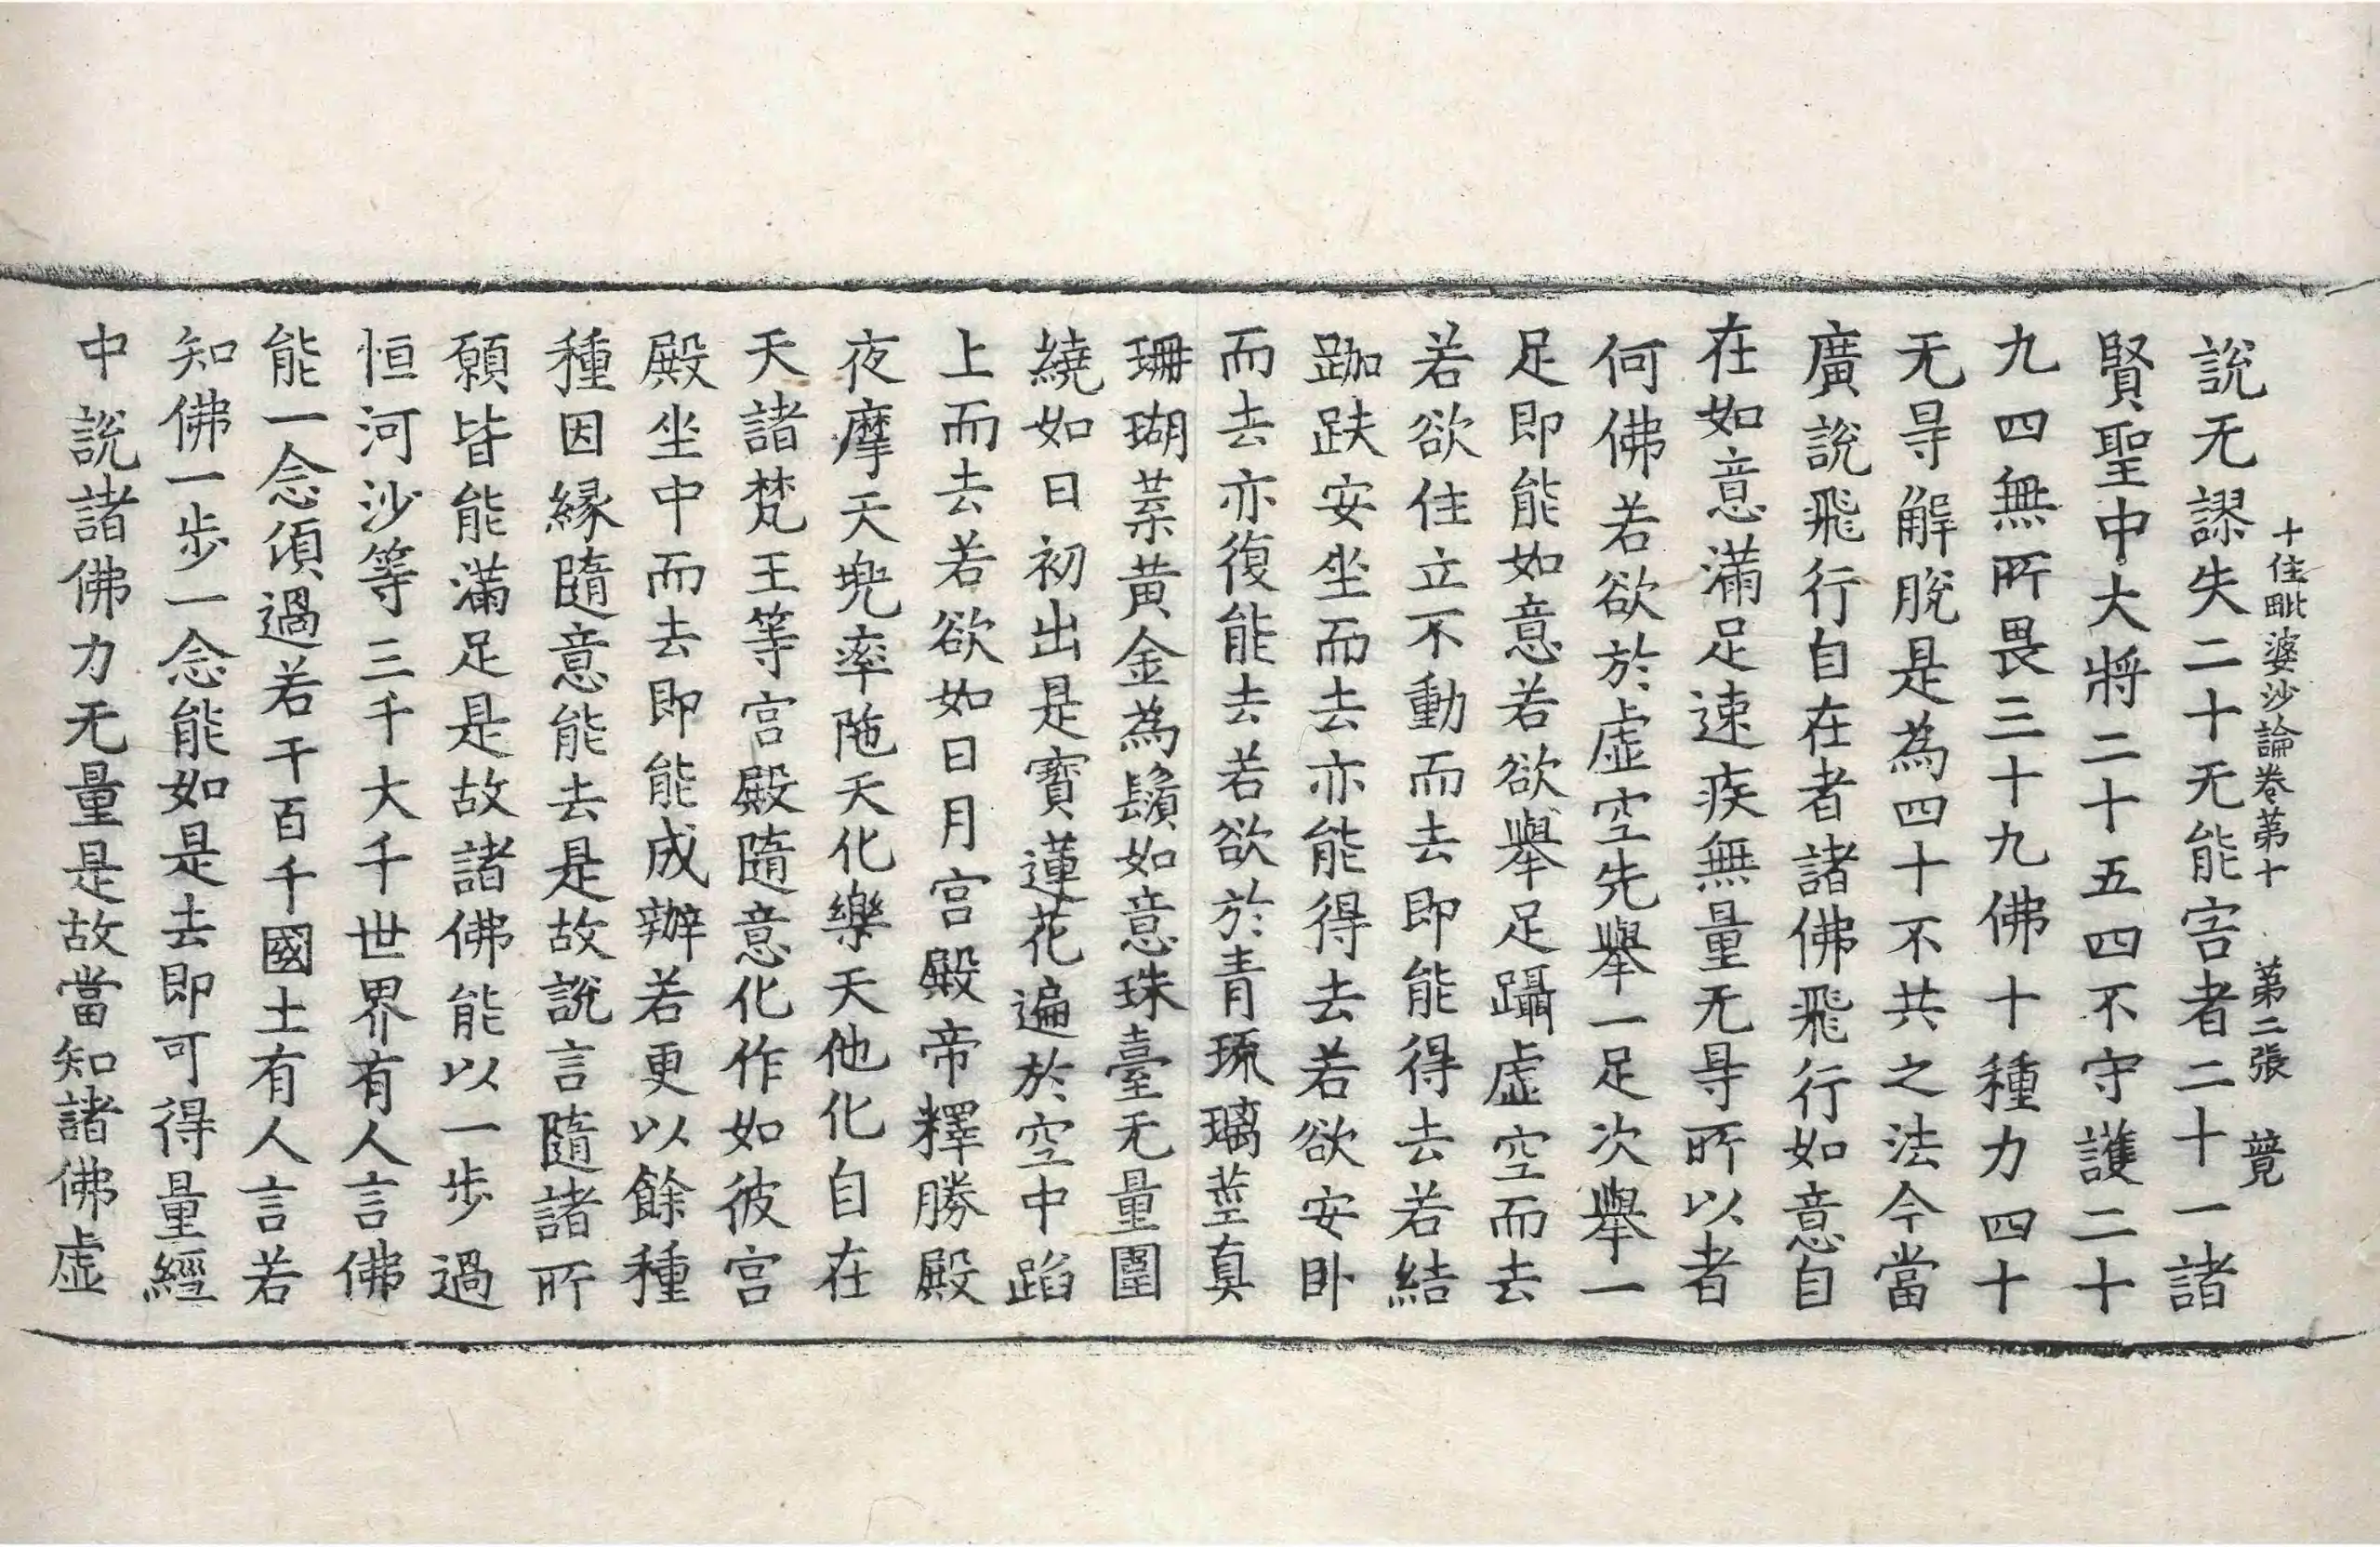 十住毗婆沙論卷第十　第二張　竟
說无謬失二十无能害者二十一諸
賢聖中大將二十五四不守護二十
九四無所畏三十九佛十種力四十
无㝵解脫是為四十不共之法今當
廣說飛行自在者諸佛飛行如意自
在如意滿足速疾無量无㝵所以者
何佛若欲於虛空先舉一足次舉一
足即能如意若欲舉足躡虛空而去
若欲住立不動而去即能得去若結
跏趺安坐而去亦能得去若欲安臥
而去亦復能去若欲於青琉璃莖真
珊瑚葉黃金為鬚如意珠臺无量圍
繞如日初出是寶蓮花遍於空中蹈
上而去若欲如日月宮殿帝釋勝殿
夜摩天兜率陁天化樂天他化自在
天諸梵王等宮殿隨意化作如彼宮
殿坐中而去即能成辦若更以餘種
種因緣隨意能去是故說言隨諸所
願皆能滿足是故諸佛能以一步過
恒河沙等三千大千世界有人言佛
能一念頃過若干百千國土有人言若
知佛一步一念能如是去即可得量經
中說諸佛力无量是故當知諸佛虛